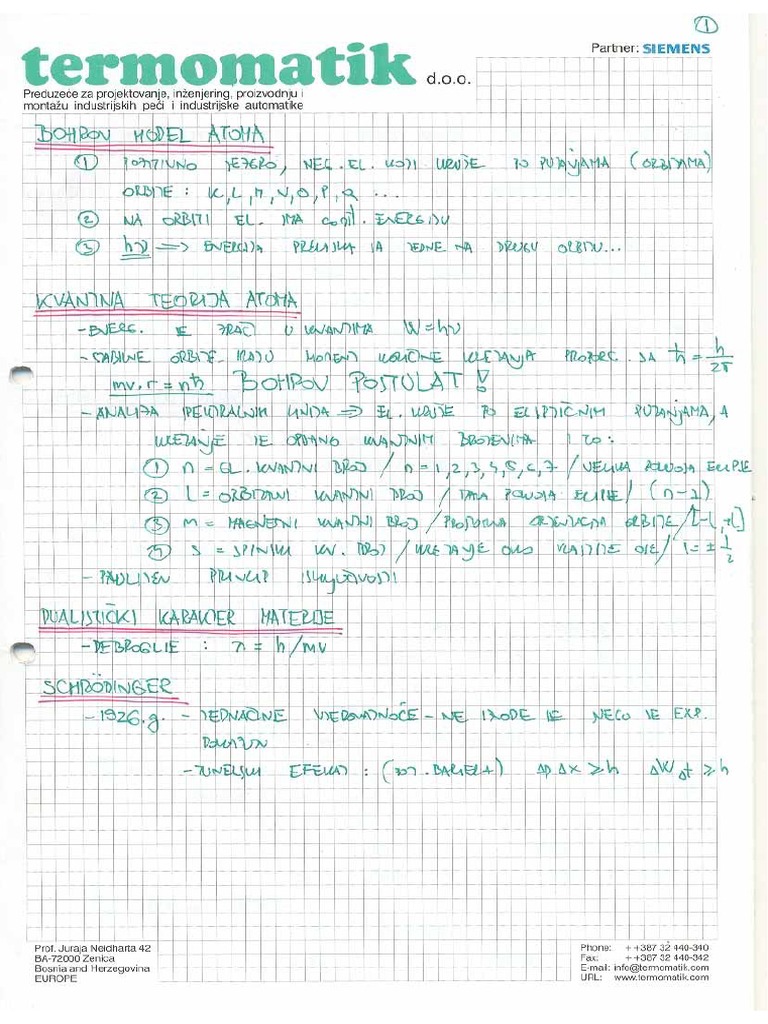 1
termomatik d.o.o.
Partner: SIEMENS
Preduzeće za projektovanje, inženjering, proizvodnju i
montažu industrijskih peći i industrijske automatike
BOHROV MODEL ATOMA
① POZITIVNO JEZGRO, NEG. EL. KOJI KRUŽE PO PUTANJAMA (ORBITAMA)
ORBITE : K, L, M, N, O, P, Q ...
② NA ORBITI EL. IMA CONST. ENERGIJU
③ hν => ENERGIJA PRELASKA SA JEDNE NA DRUGU ORBITU...
KVANTNA TEORIJA ATOMA
- ENERG. SE ZRAČI U KVANTIMA W = hν
- STABILNE ORBITE IMAJU MOMENT KOLIČINE KRETANJA PROPORC. SA ħ = h/2π
mv.r = nħ BOHROV POSTULAT !
- ANALIZA SPEKTRALNIH LINIJA => EL. KRUŽE PO ELIPTIČNIM PUTANJAMA, A
KRETANJE JE OPISANO KVANTNIM BROJEVIMA I TO:
① n = GL. KVANTNI BROJ / n = 1, 2, 3, 4, 5, 6, 7 / VELIKA POLUOSA ELIPSE
② L = ORBITALNI KVANTNI BROJ / MALA POLUOSA ELIPSE / (n-1)
③ M = MAGNETNI KVANTNI BROJ / PROSTORNA ORJENTACIJA ORBITE / [-L, +L]
④ S = SPINSKI KV. BROJ / KRETANJE OKO VLASTITE OSE / S = ± 1/2
- PAULIJEV PRINCIP ISKLJUČIVOSTI
DUALISTIČKI KARAKTER MATERIJE
- DEBROGLIE : λ = h/mv
SCHRÖDINGER
- 1926.g. - JEDNAČINE VJEROVATNOĆE - NE IZVODE SE NEGO SE EXP.
DOKAZUJU
- TUNELSKI EFEKAT : (POT. BARIJERA) Δp Δx ≥ h ΔW Δt ≥ h
Prof. Juraja Neidharta 42
BA-72000 Zenica
Bosnia and Herzegovina
EUROPE
Phone: ++387 32 440-340
Fax: ++387 32 440-342
E-mail: info@termomatik.com
URL: www.termomatik.com